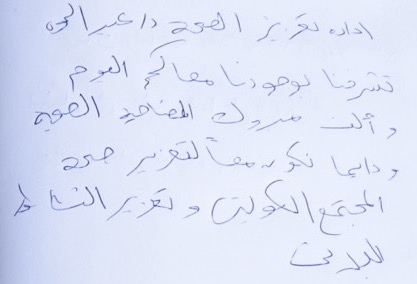 اداره تعزيز الصحة د/عبير البحو
تشرفنا بوجودنا معاكم اليوم
وألف مبروك افتتاحية الصحية
ودايما نكون معاً لتعزيز صحة
المجتمع الكويتي وتعزيز النشاط
البدني